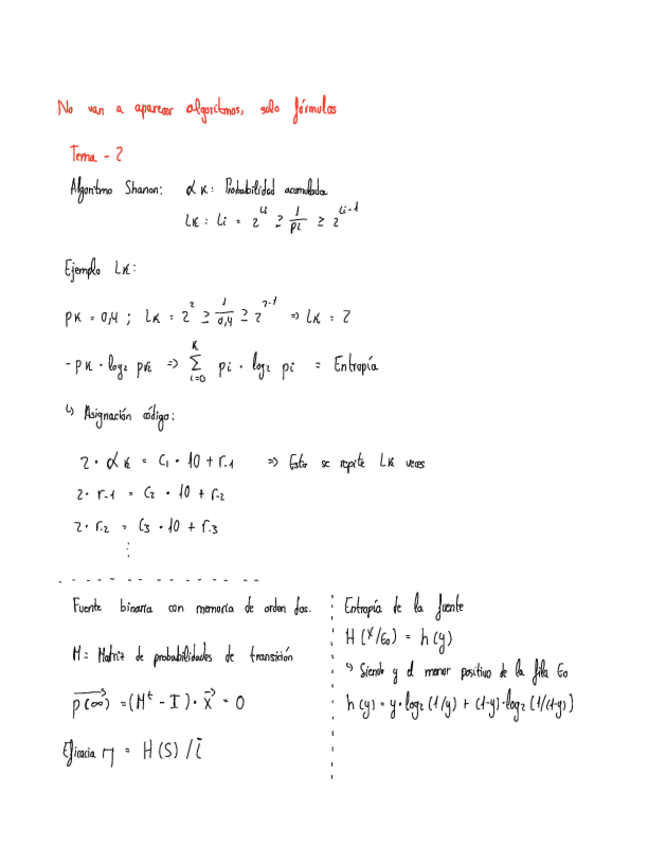 No van a aparecer algoritmos, solo fórmulas
Tema - 2
Algoritmo Shanon: αk: Probabilidad acumulada
Lk: Li = 2^Li ≥ 1/pi ≥ 2^(Li-1)
Ejemplo Lk:
pk = 0,4 ; Lk = 2^2 ≥ 1/0,4 ≥ 2^(2-1) => Lk = 2
-pk · log2 pk => Σ(i=0, K) pi · log2 pi = Entropía
↳ Asignación código:
2 · αk = C1 · 10 + r-1 => Esto se repite Lk veces
2 · r-1 = C2 · 10 + r-2
2 · r-2 = C3 · 10 + r-3
⋮
Fuente binaria con memoria de orden dos.
M = Matriz de probabilidades de transición
p(∞) = (M^t - I) · x⃗ = 0
Eficacia η = H(S) / l̄
Entropía de la fuente
H(X/Eo) = h(y)
↳ Siendo y el menor positivo de la fila Eo
h(y) = y · log2 (1/y) + (1-y) · log2 (1/(1-y))